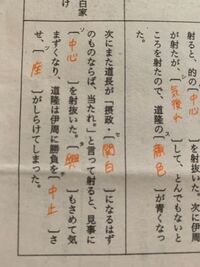 白家
け
射ると、的の〔中心
を射抜いた。次に伊周
が射たが、〔気後れ
〕して、とんでもないと
ころを射たので、道隆の〔顔色
〕が青くなっ
た。
次にまた道長が「摂政・〔関白
〕になるはず
のものならば、当たれ。」と言って射ると、見事に
〔中心
〕を射抜いた。〔興
〕もさめて気
まずくなり、道隆は伊周に勝負を〔中止
〕さ
せ、〔座
〕がしらけてしまった。